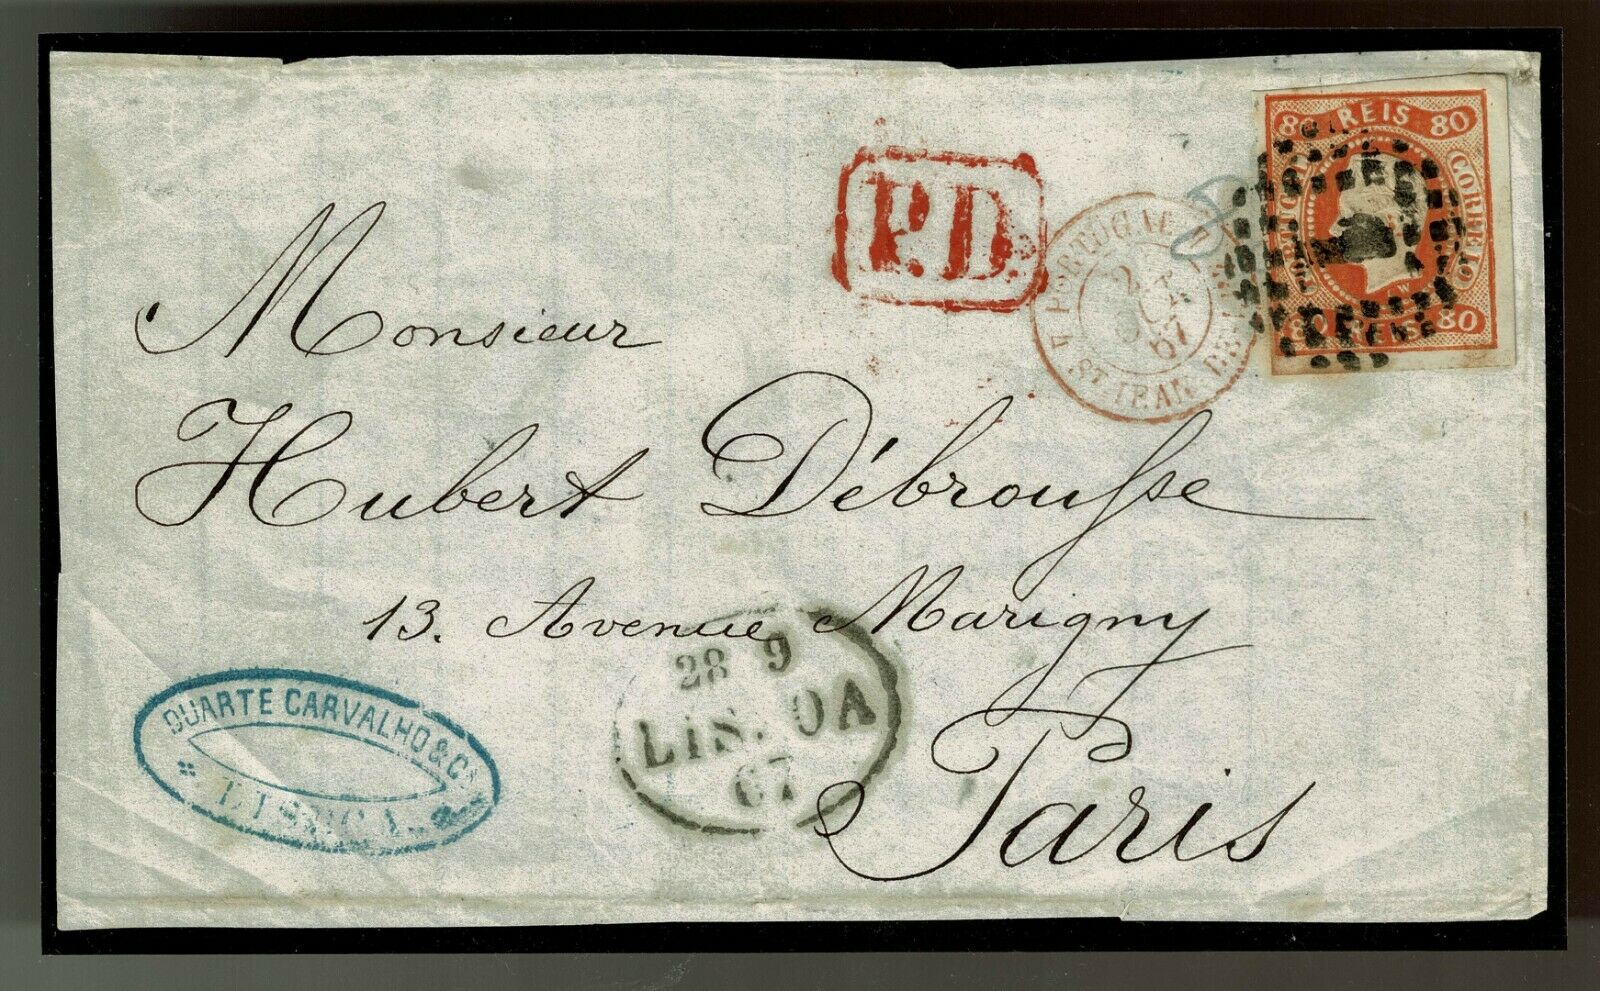 80 REIS 80
PORTUGAL
CORREIO
80 REIS 80
P.D.
PORTUGAL
2
67
ST JEAN DE
Monsieur
Hubert Débrousse
13. Avenue Marigny
Paris
28 9
LISBOA
67
DUARTE CARVALHO & Cª
LISBOA